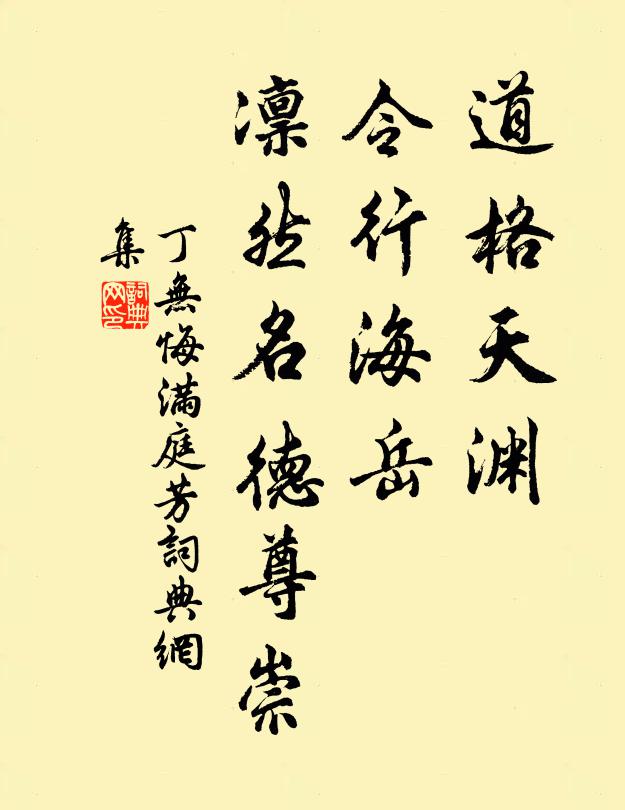 道格天渊
令行海岳
凛然名德尊崇
丁無悔滿庭芳詞典網
集
詞典
网印